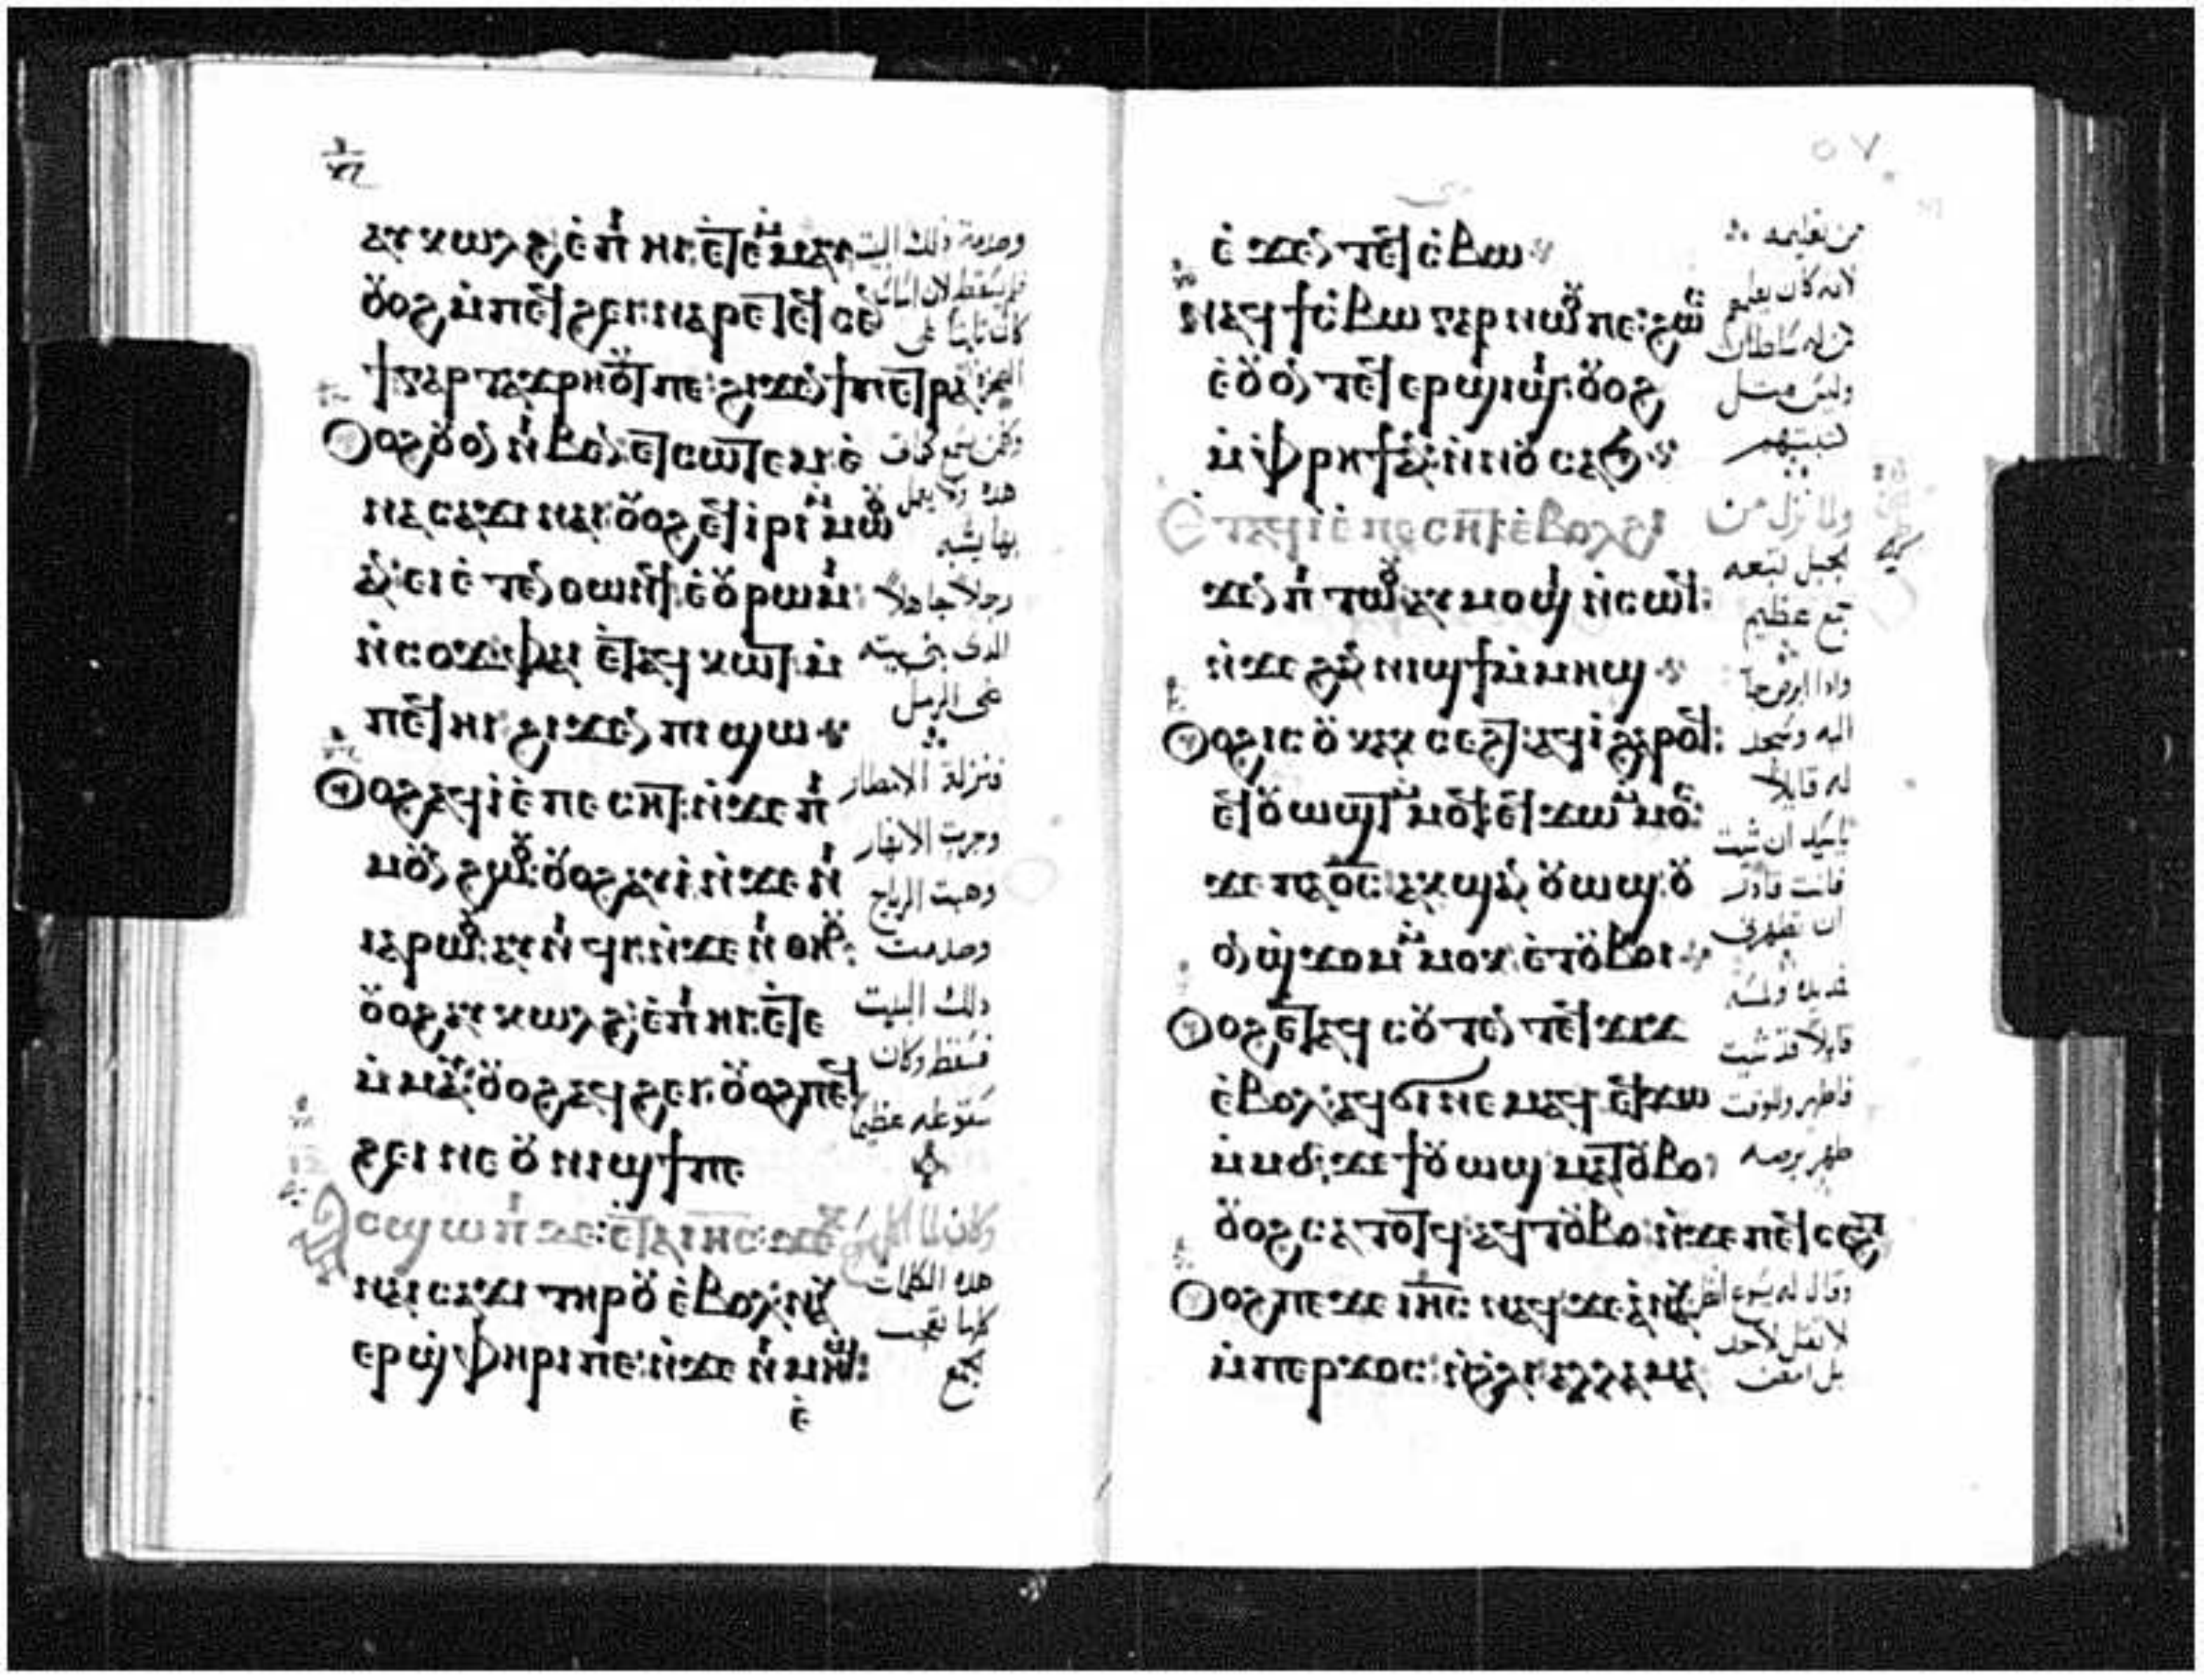 ⲁⲩⲕⲱⲗϩ ⲉⲡⲓⲏⲓ ⲉⲧⲉⲙⲙⲁⲩ
ⲟⲩⲟϩ ⲙ̀ⲡⲉϥϩⲉⲓ: ⲛⲁⲣⲉⲧⲉϥⲥⲉⲛ
ϯ ⲅⲁⲣ ⲧⲁϫⲣⲏⲟⲩⲧ ⲡⲉ: ϩⲓϫⲉⲛ ϯⲡⲉⲧⲣⲁ
ⲟⲩⲟϩ ⲟⲩⲟⲛ ⲛⲓⲃⲉⲛ ⲉⲧⲥⲱⲧⲉⲙ ⲉ̀
ⲛⲁⲥⲁϫⲓ ⲛⲁⲓ: ⲟⲩⲟϩ ⲉⲧⲓⲣⲓ ⲙ̀ⲙⲱⲟⲩ
ⲁⲛ: ⲉⲓⲉ̀ⲧⲉⲛⲑⲱⲛϥ ⲉ̀ⲟⲩⲣⲱⲙⲓ
ⲛ̀ⲥⲟϫ: ⲫⲏ ⲉ̀ⲧⲁϥⲕⲱⲧ ⲙ̀
ⲡⲉϥⲏⲓ ϩⲓϫⲉⲛ ⲡⲓϣⲱ
ⲟⲩⲟϩ ⲁϥⲓ̀ ⲉ̀ⲡⲉⲥⲏⲧ: ⲛ̀ϫⲉ ⲡⲓ
ⲙⲟⲩⲛϩⲱⲟⲩ: ⲟⲩⲟϩ ⲁⲩⲓ̀ ⲛ̀ϫⲉ ⲛⲓ
ⲓⲁⲣⲱⲟⲩ: ⲁⲩⲛⲓϥⲓ ⲛ̀ϫⲉ ⲛⲓⲑⲏⲟⲩ:
ⲟⲩⲟϩ ⲁⲩⲕⲱⲗϩ ⲉ̀ⲡⲓⲏⲓ: ⲉ̀ⲧⲉ
ⲙ̀ⲙⲁⲩ: ⲟⲩⲟϩ ⲁϥϩⲉⲓ: ⲟⲩⲟϩ ⲡⲉϥ
ϩⲉⲓ ⲛⲉ ⲟⲩⲛⲓϣϯ ⲡⲉ
ⲁⲥϣⲱⲡⲓ ⲇⲉ: ⲉ̀ⲧⲁ ⲓⲏⲥ: ϫⲉⲕ
ⲛⲁⲓⲥⲁϫⲓ ⲧⲏⲣⲟⲩ ⲉ̀ⲃⲟⲗ: ⲛⲁⲩ
ⲉⲣϣⲫⲏⲣⲓ ⲡⲉ: ⲛ̀ϫⲉ ⲛⲓⲙⲏϣ:
ⲉ̀
وصدمة ذلك البيت
فلم يسقط لان اساسه
كان ثابتا على
الصخرة
وكل من يسمع كلامى
هذه ولا يعمل
بها يشبه
رجلا جاهلا
الدى بنى بيته
على الرمل
فنزلة الامطار
وجرت الانهار
وهبت الرياح
وصدمت
ذلك البيت
فسقط وكان
سقوطه عظيما
وكان لما اكمل يسوع
هذه الكلمات
كلها تعجب
الجمع
٥٧
ⲉ̀ϫⲉⲛ ⲧⲉϥⲥ̀ⲃⲱ
ⲛⲁϥϯⲥⲃⲱ ⲅⲁⲣ ⲛⲱⲟⲩ ⲡⲉ: ϩⲱⲥ
ⲉ̀ⲟⲩⲟⲛⲧⲉϥ ⲉⲣϣⲓϣⲓ: ⲟⲩⲟϩ
ⲙ̀ⲫⲣⲏϯ ⲁⲛ: ⲛ̀ⲛⲟⲩⲥⲁϧ
Ⲉⲧⲁϥⲓ̀ ⲉ̀ⲡⲉⲥⲏⲧ ⲉ̀ⲃⲟⲗ ϩⲓ
ϫⲉⲛ ⲡⲓⲧⲱⲟⲩ: ⲁⲩⲙⲟϣⲓ ⲛ̀ⲥⲱϥ:
ⲛ̀ϫⲉ ϩⲁⲛⲛⲓϣϯ ⲙ̀ⲙⲏϣ
ⲟⲩⲟϩ ⲓⲥ ⲟⲩⲕⲁⲕⲥⲉϩⲧ: ⲁϥⲓ̀ ϩⲁⲣⲟϥ:
ⲉϥⲟⲩⲱϣⲧ ⲙ̀ⲙⲟϥ: ⲉϥϫⲱ ⲙ̀ⲙⲟⲥ:
ϫⲉ ⲡⲁⲟ̅ⲥ̅ ⲁⲕϣⲁⲛⲟⲩⲱϣ: ⲟⲩ
ⲟⲛ ϣϫⲟⲙ ⲙ̀ⲙⲟⲕ: ⲉ̀ⲧⲟⲩⲃⲟⲓ
ⲟⲩⲟϩ ⲉⲧⲁϥⲥⲟⲩⲧⲉⲛ ⲧⲉϥϫⲓϫ
ⲉ̀ⲃⲟⲗ: ⲁϥϭⲓ ⲛⲉⲙⲁϥ ⲉϥϫⲱ
ⲙ̀ⲙⲟⲥ: ϫⲉ ϯⲟⲩⲱϣ ⲙⲁⲧⲟⲩⲃⲟ
ⲟⲩⲟϩ ⲥⲁⲧⲟⲧϥ: ⲁϥⲧⲟⲩⲃⲟ: ⲛ̀ϫⲉ ⲡⲉϥⲥⲉϩⲧ
ⲟⲩⲟϩ ⲡⲉϫⲉ ⲓⲏⲥ ⲛⲁϥ: ϫⲉ ⲁⲛⲁⲩ
ⲙ̀ⲡⲉⲣϫⲟⲥ: ⲛ̀ϩⲗⲓ: ⲁⲗⲗⲁ ⲙⲁ
من تعليمه
لانه كان يعلمهم
كمن له سلطان
وليس مثل
كتبتهم
ولما نزل من
الجبل تبعه
جمع عظيم
واذا ابرص جا
اليه وسجد
له قايلا
ياسيد ان شيت
فانت قادر
ان تطهرنى
فمد يده ولمسه
قايلا قد شيت
فاطهر وللوقت
طهر برصه
وقال له يسوع انظر
لا تقل لاحد
بل امض